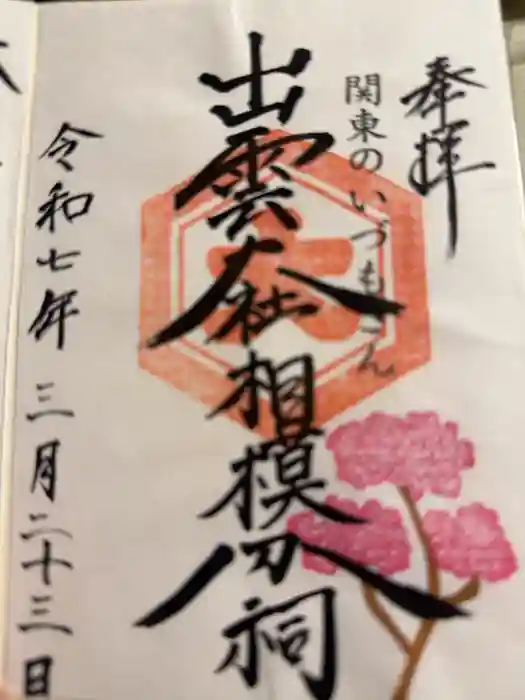 奉拝
関東のいづもさん
出雲大社相模分祠
大
令和七年 三月二十三日